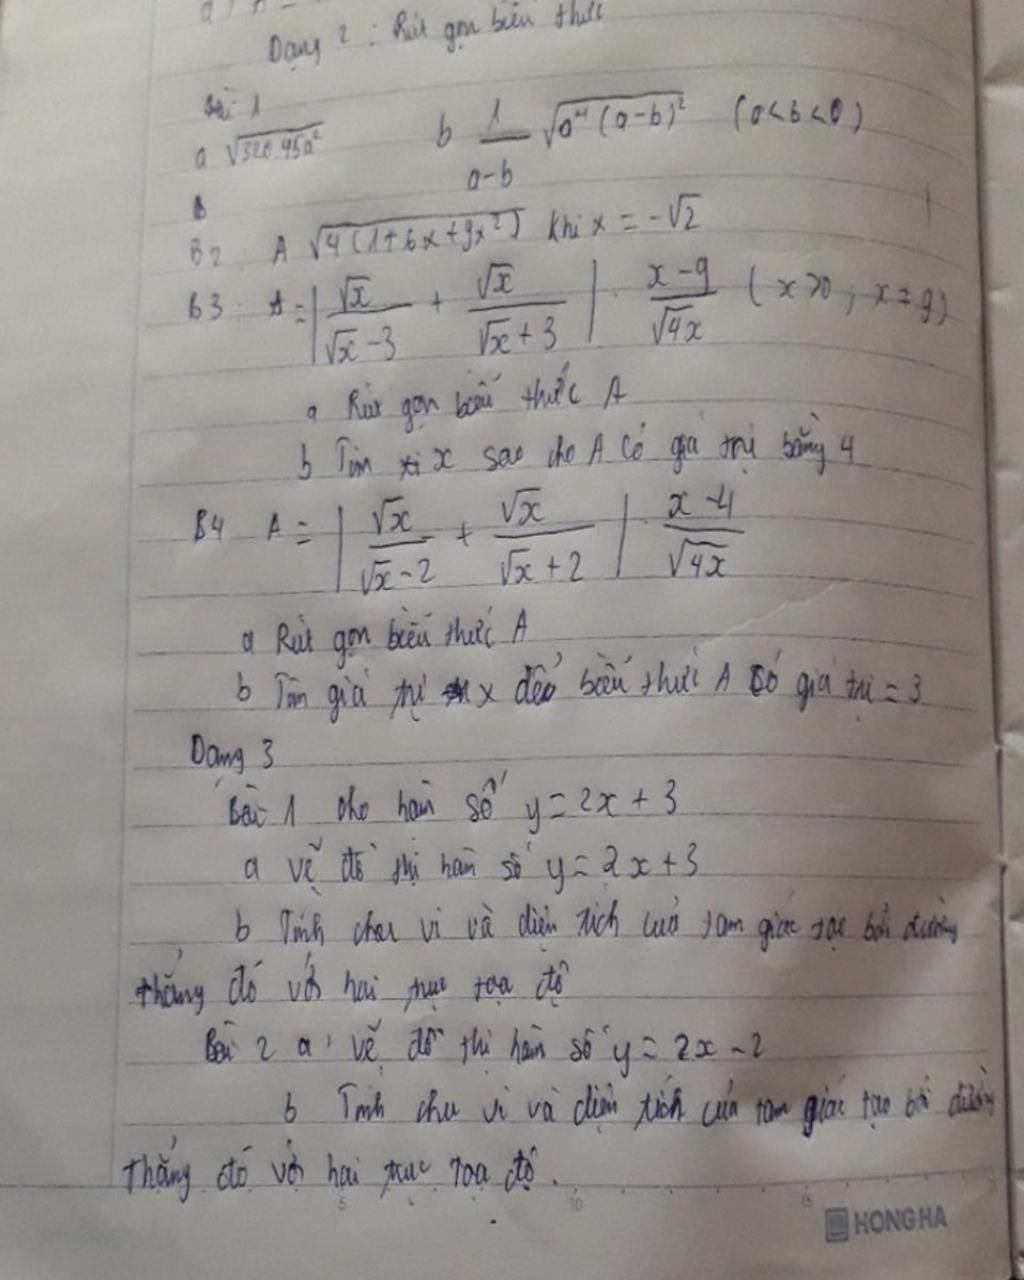 Dạng 2 : Rút gọn biểu thức
Bài 1
a √320.45a² b 1/(a-b) √a⁴(a-b)² (a<b<0)
B2 : A √4(1+6x+9x²) khi x = -√2
B3 : A = | √x/(√x-3) + √x/(√x+3) | . (x-9)/√4x ( x>0 ; x = 9)
a Rút gọn biểu thức A
b Tìm x sao cho A có giá trị bằng 4
B4 A = | √x/(√x-2) + √x/(√x+2) | . (x-4)/√4x
a Rút gọn biểu thức A
b Tìm giá trị x để biểu thức A có giá trị = 3
Dạng 3
Bài 1 cho hàm số y = 2x + 3
a vẽ đồ thị hàm số y = 2x + 3
b Tính chu vi và diện tích của tam giác tạo bởi đường
thẳng đó với hai trục tọa độ
Bài 2 a, vẽ đồ thị hàm số y = 2x - 2
b Tính chu vi và diện tích của tam giác tạo bởi đường
thẳng đó với hai trục tọa độ.
5 10 15
HONG HA